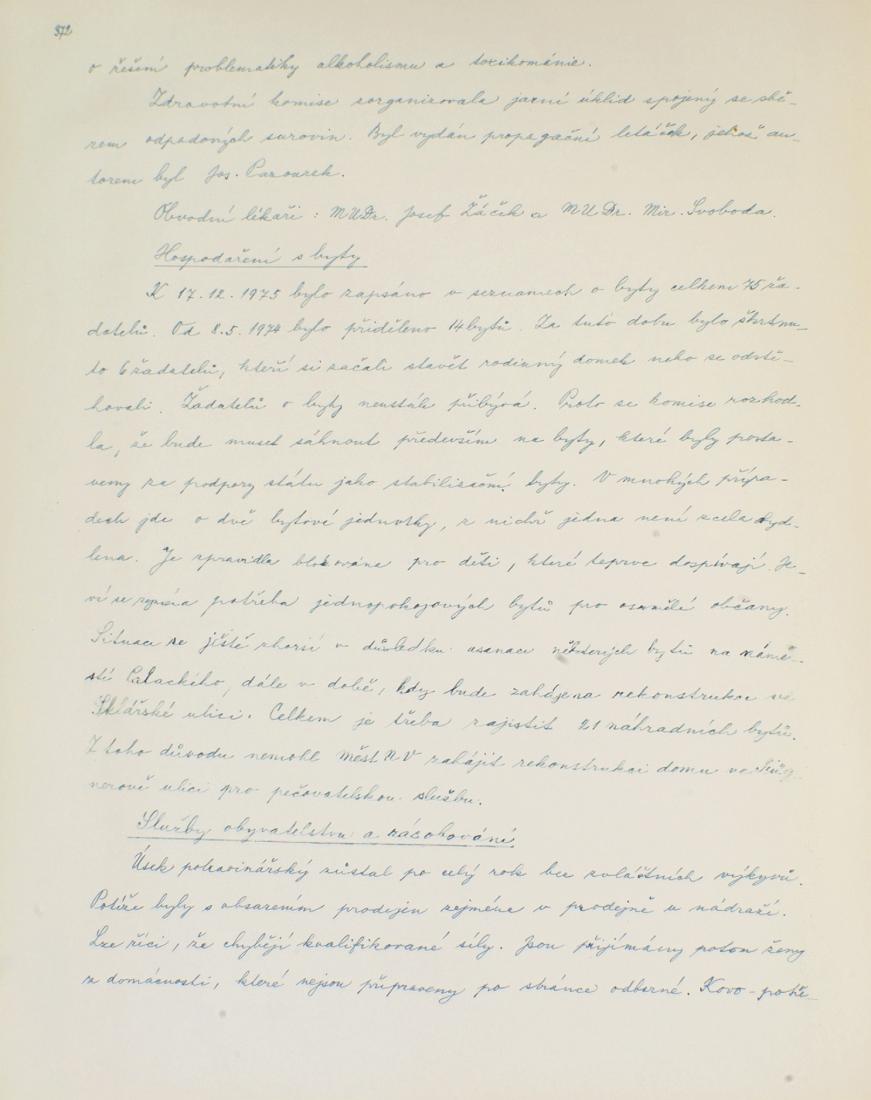 372
o řešení problematiky alkoholismu a toxikománie.
Zdravotní komise zorganizovala jarní úklid spojený se sbě-
rem odpadových surovin. Byl vydán propagační letáček, jehož au-
torem byl Jos. Parourek.
Obvodní lékaři : MUDr. Josef Žáček a MUDr. Mir. Svoboda.
Hospodaření s byty
K 17.12.1975 bylo zapsáno v seznamech o byty celkem 75 ža-
datelů. Od 8.5.1974 bylo přiděleno 14 bytů. Za tuto dobu bylo škrtnu-
to 6 žadatelů, kteří si začali stavět rodinný domek nebo se odstě-
hovali. Žadatelů o byty neustále přibývá. Proto se komise rozhod-
la, že bude muset sáhnout především na byty, které byly posta-
veny za podpory státu jako stabilizační byty. V mnohých přípa-
dech jde o dvě bytové jednotky, z nichž jedna není zcela obyd-
lena. Je zpravidla blokována pro děti, které teprve dospívají. Je-
ví se zejména potřeba jednopokojových bytů pro osamělé občany.
Situace se ještě zhorší v důsledku asanace některých bytů na námě-
stí Palackého, dále v době, kdy bude zahájena rekonstrukce ve
Sklářské ulici. Celkem je třeba zajistit 21 náhradních bytů.
Z toho důvodu nemohl Měst NV zahájit rekonstrukci domu ve
nerově ulici pro pečovatelskou službu.
Služby obyvatelstvu a zásobování
Úsek potravinářský zůstal po celý rok bez zvláštních výkyvů.
Potíže byly s obsazením prodejen zejména v prodejně u nádraží.
Lze říci, že chybějí kvalifikované síly. Jsou přijímány potom ženy
z domácnosti, které nejsou připraveny po stránce odborné. Kovo-potře-